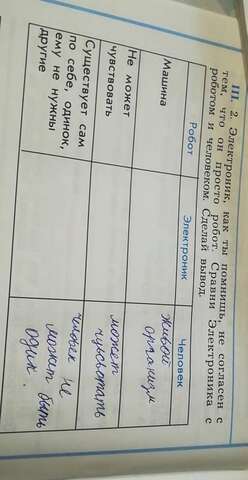 III. 2. Электроник, как ты помнишь, не согласен с
тем, что он просто робот. Сравни Электроника с
роботом и человеком. Сделай вывод.
Робот
Электроник
Человек
Машина
живой
организм
Не может
чувствовать
может
чувствовать
Существует сам
по себе, одинок,
ему не нужны
другие
человек не
может быть
один.